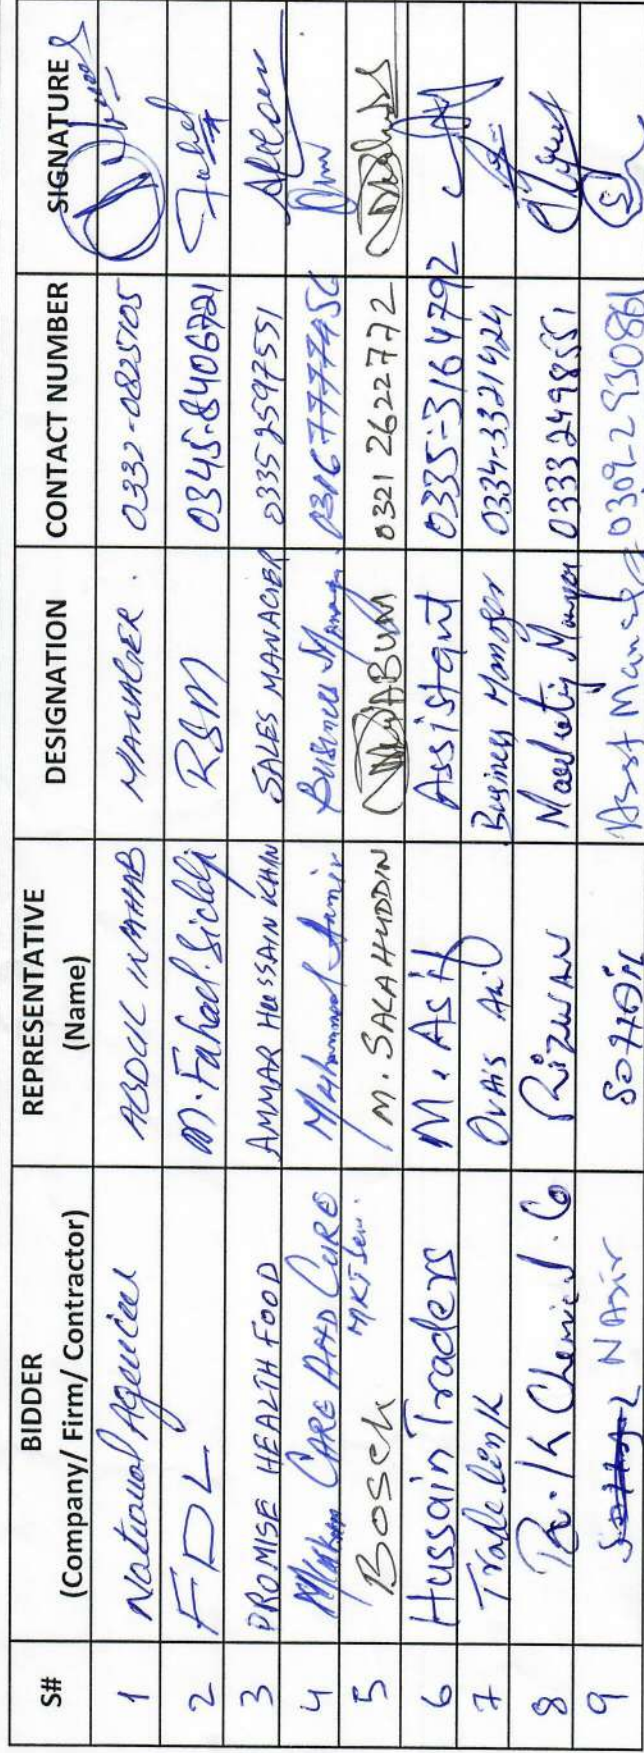 S# BIDDER (Company/ Firm/ Contractor) REPRESENTATIVE (Name) DESIGNATION CONTACT NUMBER SIGNATURE
1 National Agencies ABDUL WAHAB MANAGER. 0332-0825705
2 FDL M. Fahad. Siddiqi RSM 0345-8406721 Fahad
3 PROMISE HEALTH FOOD AMMAR HUSSAIN KHAN SALES MANAGER 0335 2597551
4 CARE AND CURE Muhammad Aamir Business Manager. 
5 BOSCH M. SALAHUDDIN 0321 2622772
6 Hussain Traders M. Asif Assistant 0335-3164792
7 Trade link OVAIS Business Manager 0334-3321424
8 R.K Chemical. Co Rizwan Marketing Manager 0333 2498551
9 NASIR Asst Manager 0309-2930861